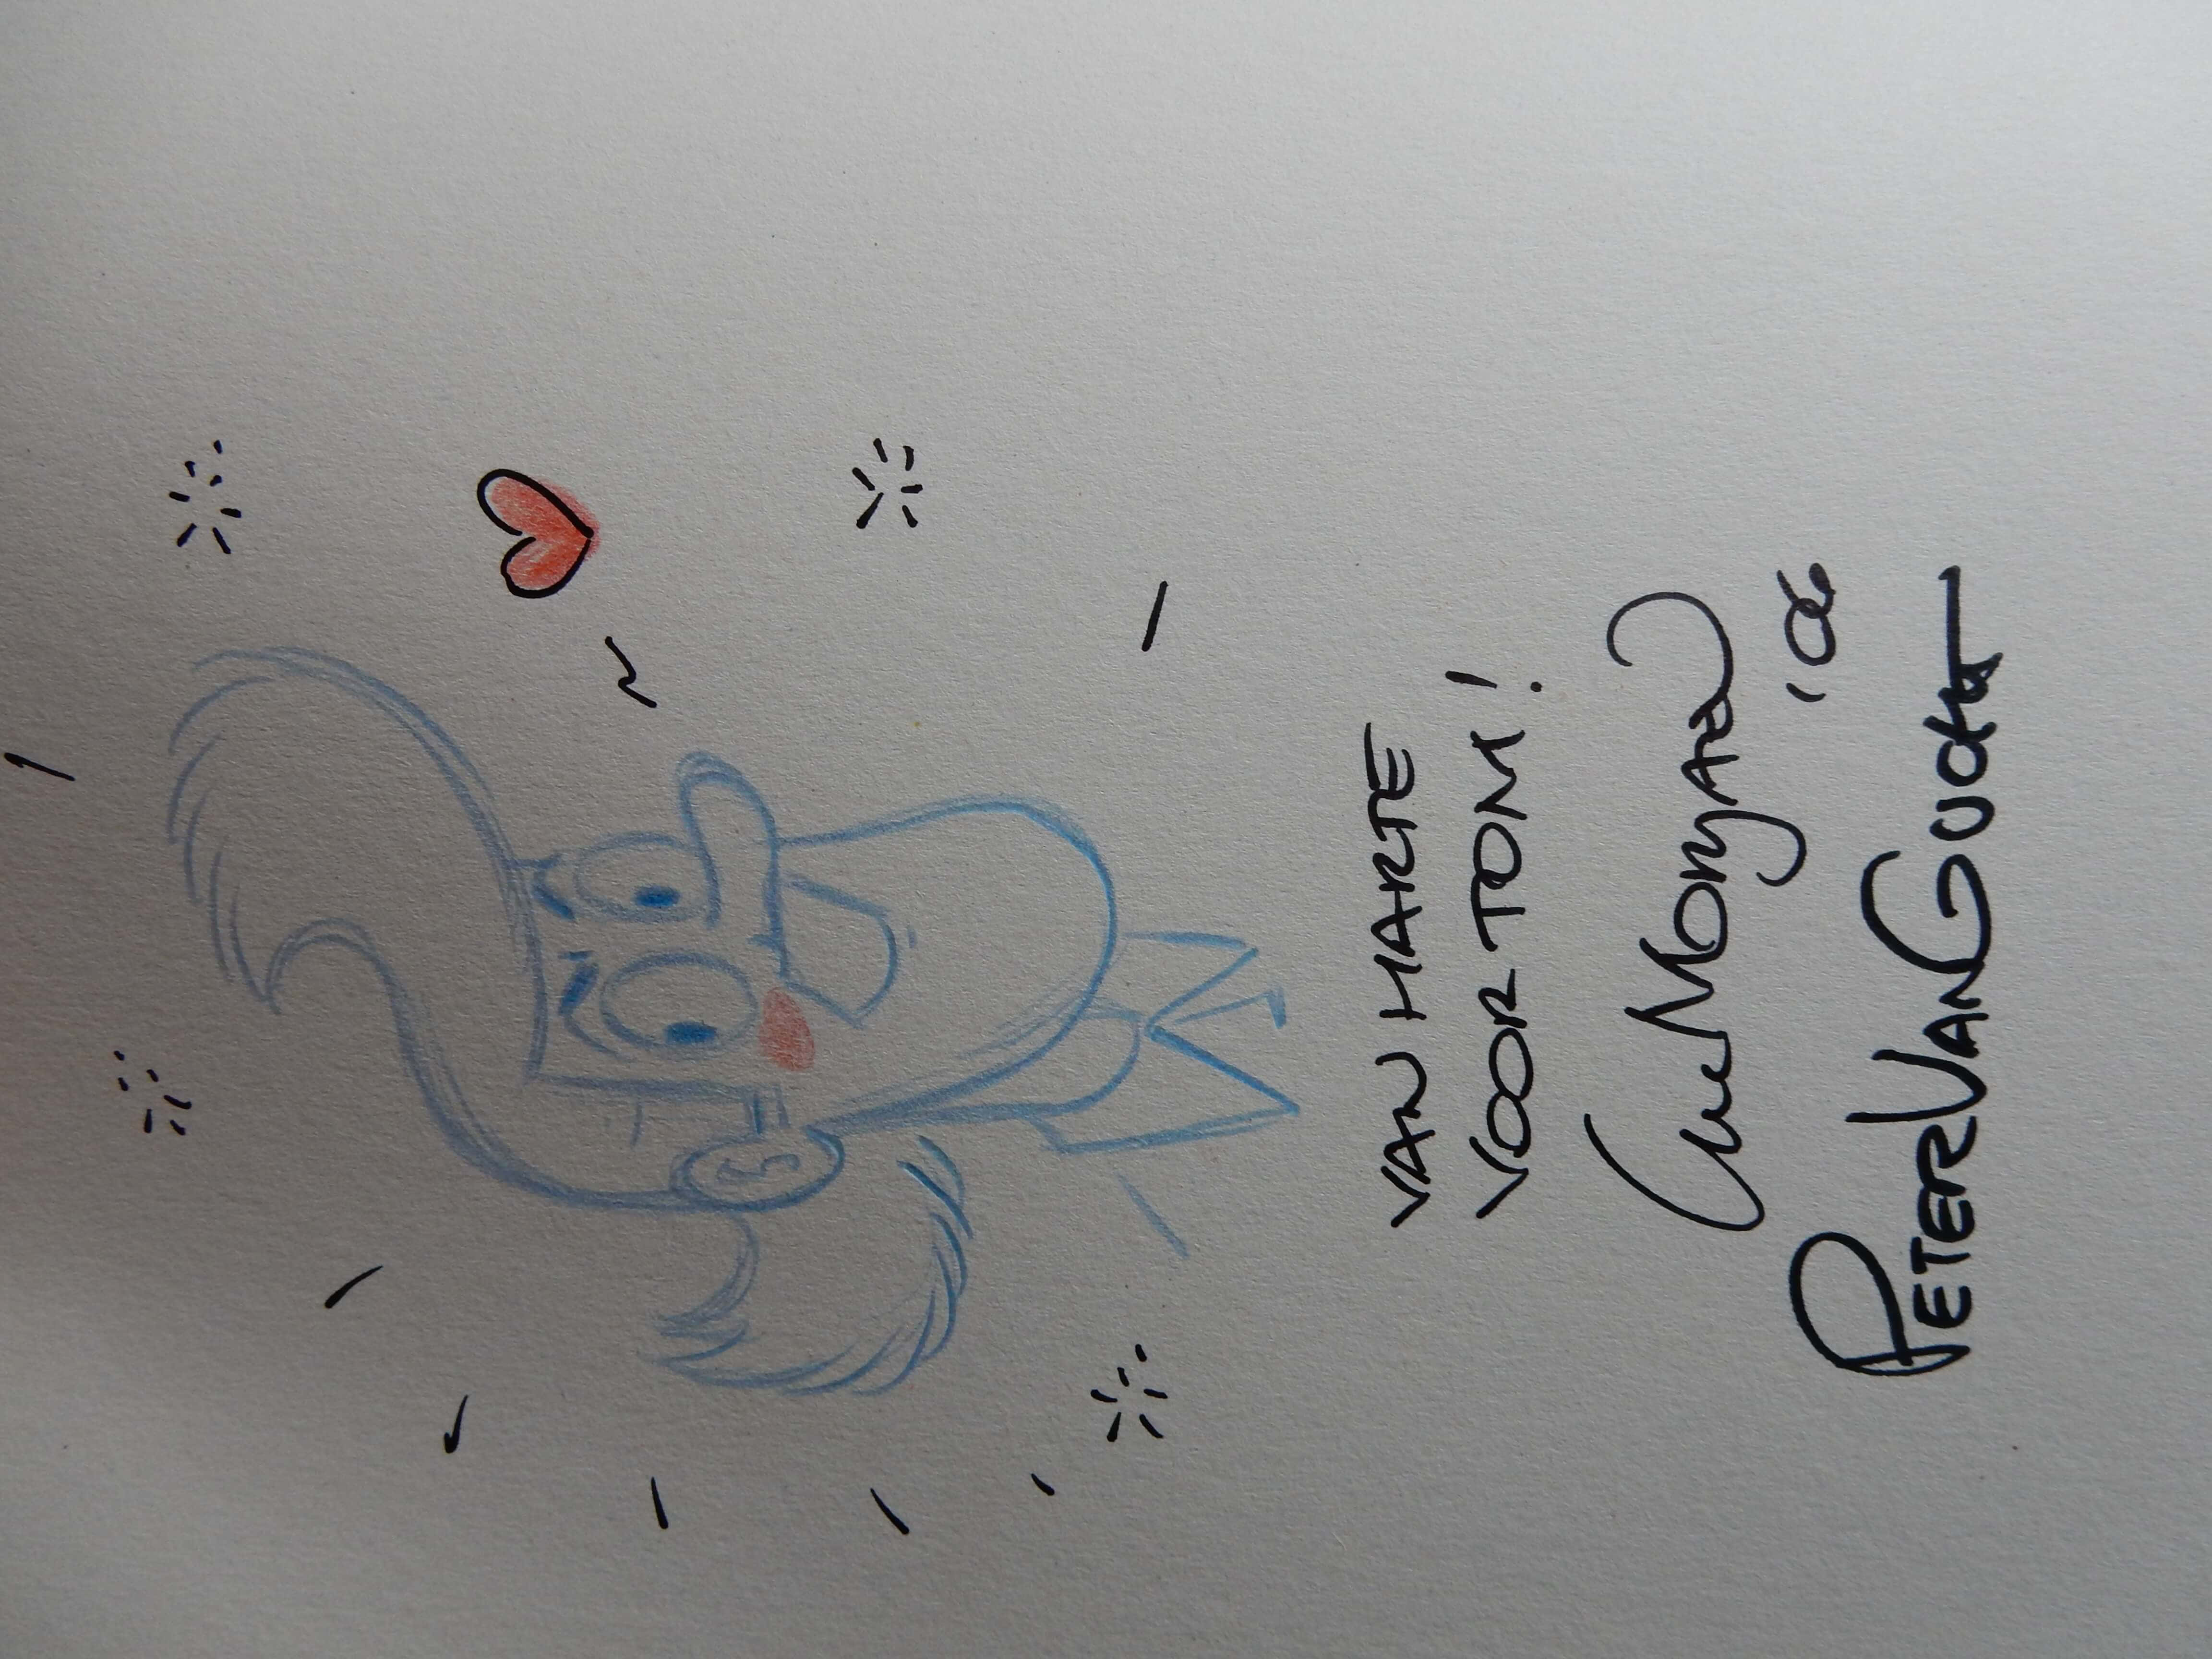 VAN HARTE
VOOR TOM!
Luc Morjaeu
'06
PETER VAN GUCHT